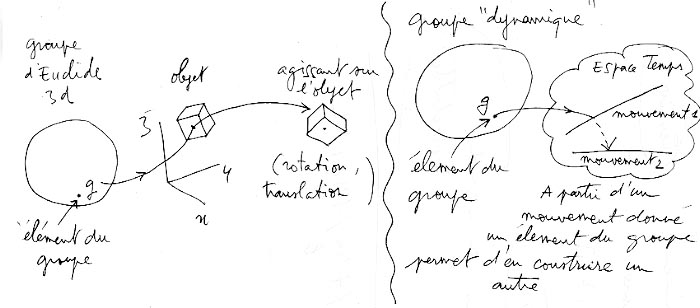 groupe
d'Euclide
3d
objet
agissant sur
l'objet
z
y
x
g
(rotation,
translation)
élément du
groupe
groupe "dynamique"
g
Espace Temps
mouvement 1
mouvement 2
élément du
groupe
A partir d'un
mouvement donné
un élément du groupe
permet d'en construire un
autre